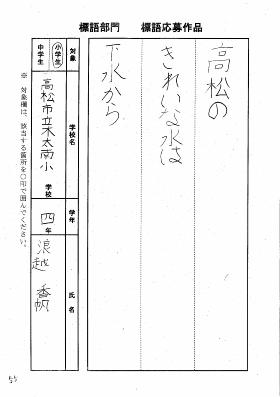 標語部門 標語応募作品
高松の
きれいな水は
下水から
対象
小学生
中学生
学校名
高松市立木太南小 学校
学年
四年
氏名
浪越 香帆
※対象欄は、該当する箇所を○印で囲んでください。
55